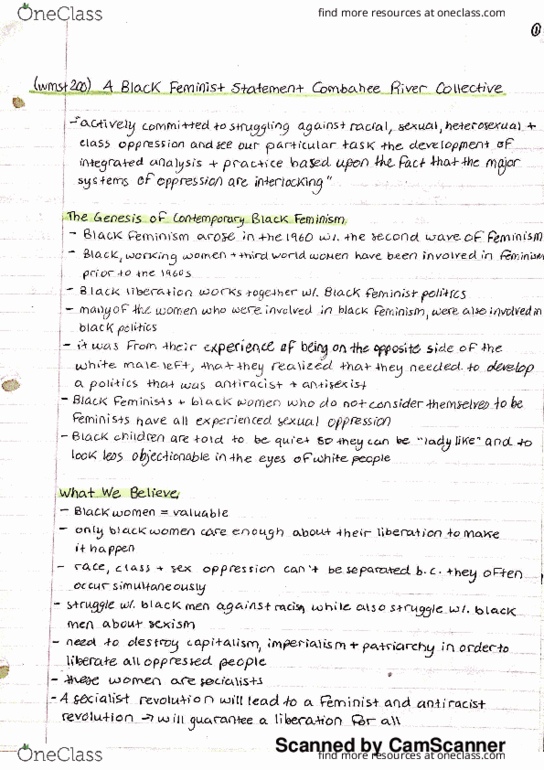 OneClass
find more resources at oneclass.com
①
(wmst 200) A Black Feminist Statement Combahee River Collective
- "actively committed to struggling against racial, sexual, heterosexual +
class oppression and see our particular task the development of
integrated analysis + practice based upon the fact that the major
systems of oppression are interlocking"
The Genesis of Contemporary Black Feminism
- Black Feminism arose in the 1960 w/. the second wave of feminism
- Black, working women + third world women have been involved in feminism
prior to the 1960s
- Black liberation works together w/. Black feminist politics
- many of the women who were involved in black feminism, were also involved in
black politics
- it was from their experience of being on the opposite side of the
white male left, that they realized that they needed to develop
a politics that was antiracist + antisexist
- Black Feminists + black women who do not consider themselves to be
feminists have all experienced sexual oppression
- Black children are told to be quiet so they can be "lady like" and to
look less objectionable in the eyes of white people
What We Believe
- Black women = valuable
- only black women care enough about their liberation to make
it happen
- race, class + sex oppression can't be separated b.c. they often
occur simultaneously
- struggle w/. black men against racism while also struggle w/. black
men about sexism
- need to destroy capitalism, imperialism + patriarchy in order to
liberate all oppressed people
- these women are socialists
- A socialist revolution will lead to a feminist and antiracist
revolution → will guarantee a liberation for all
Scanned by CamScanner
OneClass
find more resources at oneclass.com